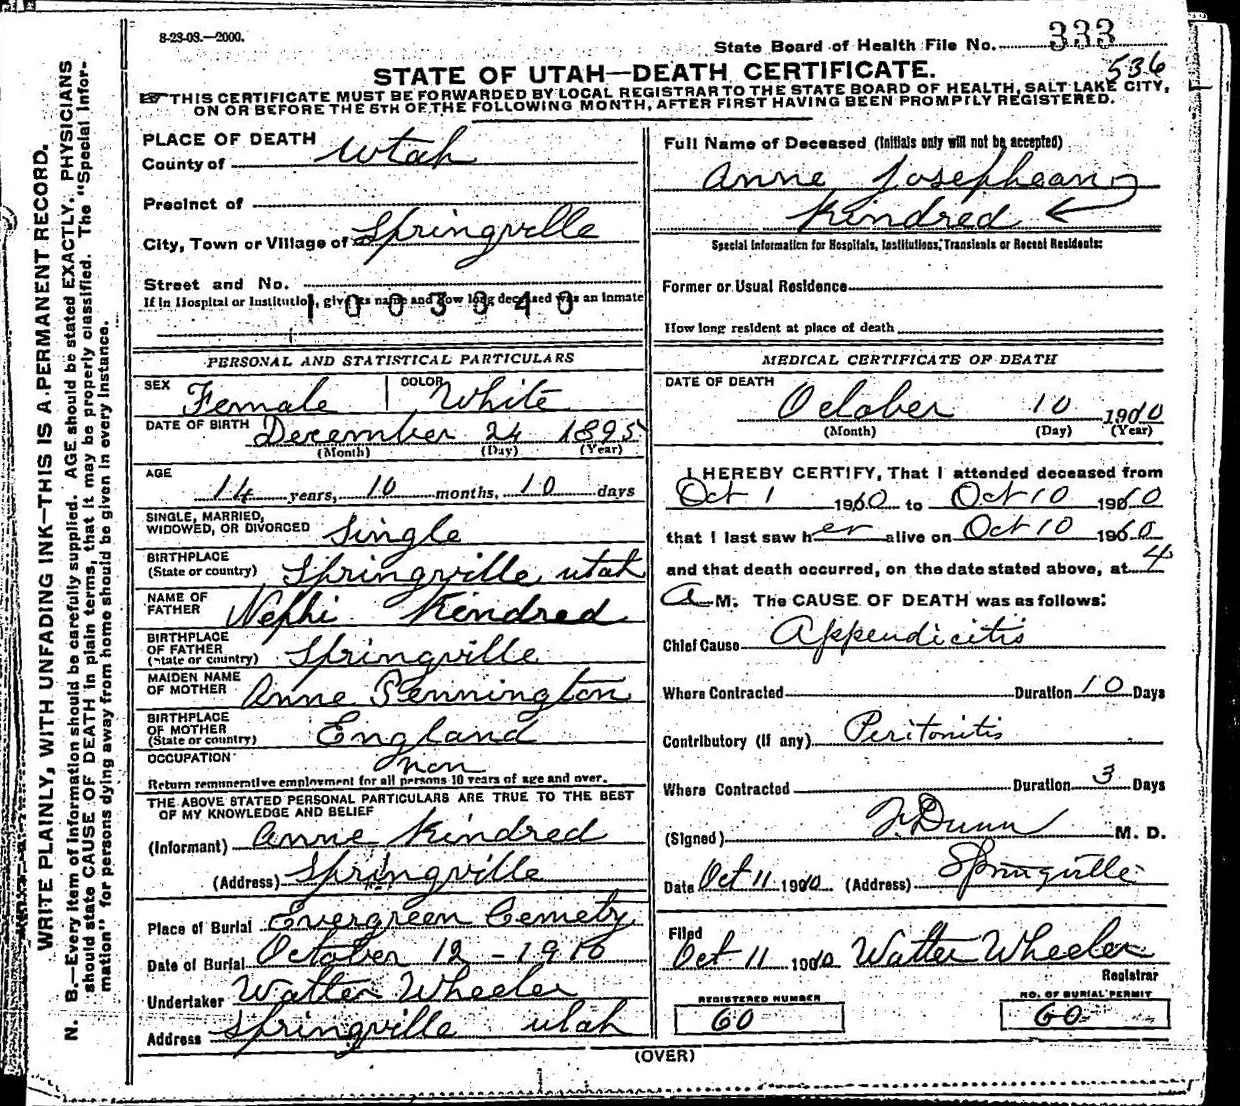 8-23-03.—2000.
State Board of Health File No. 333
536
STATE OF UTAH—DEATH CERTIFICATE.
THIS CERTIFICATE MUST BE FORWARDED BY LOCAL REGISTRAR TO THE STATE BOARD OF HEALTH, SALT LAKE CITY,
ON OR BEFORE THE 5TH OF THE FOLLOWING MONTH, AFTER FIRST HAVING BEEN PROMPTLY REGISTERED.
WRITE PLAINLY, WITH UNFADING INK—THIS IS A PERMANENT RECORD.
N. B.—Every item of information should be carefully supplied. AGE should be stated EXACTLY. PHYSICIANS
should state CAUSE OF DEATH in plain terms, that it may be properly classified. The "Special Infor-
mation" for persons dying away from home should be given in every instance.
PLACE OF DEATH
County of Utah
Precinct of
City, Town or Village of Springville
Street and No.
If in Hospital or Institution, give its name and how long deceased was an inmate
1003040
PERSONAL AND STATISTICAL PARTICULARS
SEX Female COLOR White
DATE OF BIRTH December 24 1895
(Month) (Day) (Year)
AGE
14 years, 10 months, 10 days
SINGLE, MARRIED,
WIDOWED, OR DIVORCED Single
BIRTHPLACE
(State or country) Springville utah
NAME OF
FATHER Nephi Kindred
BIRTHPLACE
OF FATHER
(State or country) Springville
MAIDEN NAME
OF MOTHER Anne Pennington
BIRTHPLACE
OF MOTHER
(State or country) England
OCCUPATION non
Return remunerative employment for all persons 10 years of age and over.
THE ABOVE STATED PERSONAL PARTICULARS ARE TRUE TO THE BEST
OF MY KNOWLEDGE AND BELIEF
(Informant) Anne Kindred
(Address) Springville
Place of Burial Evergreen Cemety
Date of Burial October 12 - 1910
Undertaker Walter Wheeler
Address Springville utah
Full Name of Deceased (Initials only will not be accepted)
Anne Josephean
Kindred
Special Information for Hospitals, Institutions, Transients or Recent Residents:
Former or Usual Residence
How long resident at place of death
MEDICAL CERTIFICATE OF DEATH
DATE OF DEATH
October 10 1910
(Month) (Day) (Year)
I HEREBY CERTIFY, That I attended deceased from
Oct 1 1910 to Oct 10 1910
that I last saw her alive on Oct 10 1910
and that death occurred, on the date stated above, at 4
A M. The CAUSE OF DEATH was as follows:
Chief Cause Appendicitis
Where Contracted Duration 10 Days
Contributory (if any) Peritonitis
Where Contracted Duration 3 Days
(Signed) F. Dunn M. D.
Date Oct 11 1910 (Address) Springville
Filed
Oct 11 1910 Walter Wheeler
Registrar
REGISTERED NUMBER
60
NO. OF BURIAL PERMIT
60
(OVER)